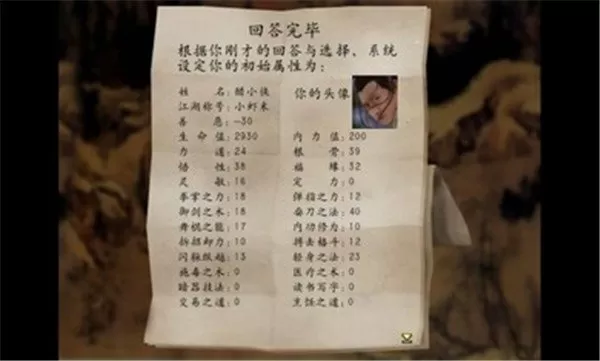 回答完毕
根据你刚才的回答与选择、系统
设定你的初始属性为:
姓 名:醋小侠 你的头像
江湖称号:小虾米
善 恶:-30
生 命 值:2930 内 力 值:200
力 道:24 根 骨:39
悟 性:38 福 缘:32
灵 敏:16 定 力:0
拳掌之力:18 弹指之力:12
御剑之术:18 耍刀之法:40
舞棍之能:17 内功修为:10
拆招卸力:10 搏击格斗:12
闪躲纵越:13 轻身之法:23
施毒之术:0 医疗之术:0
暗器技法:0 读书写字:0
交易之道:0 烹饪之道:0